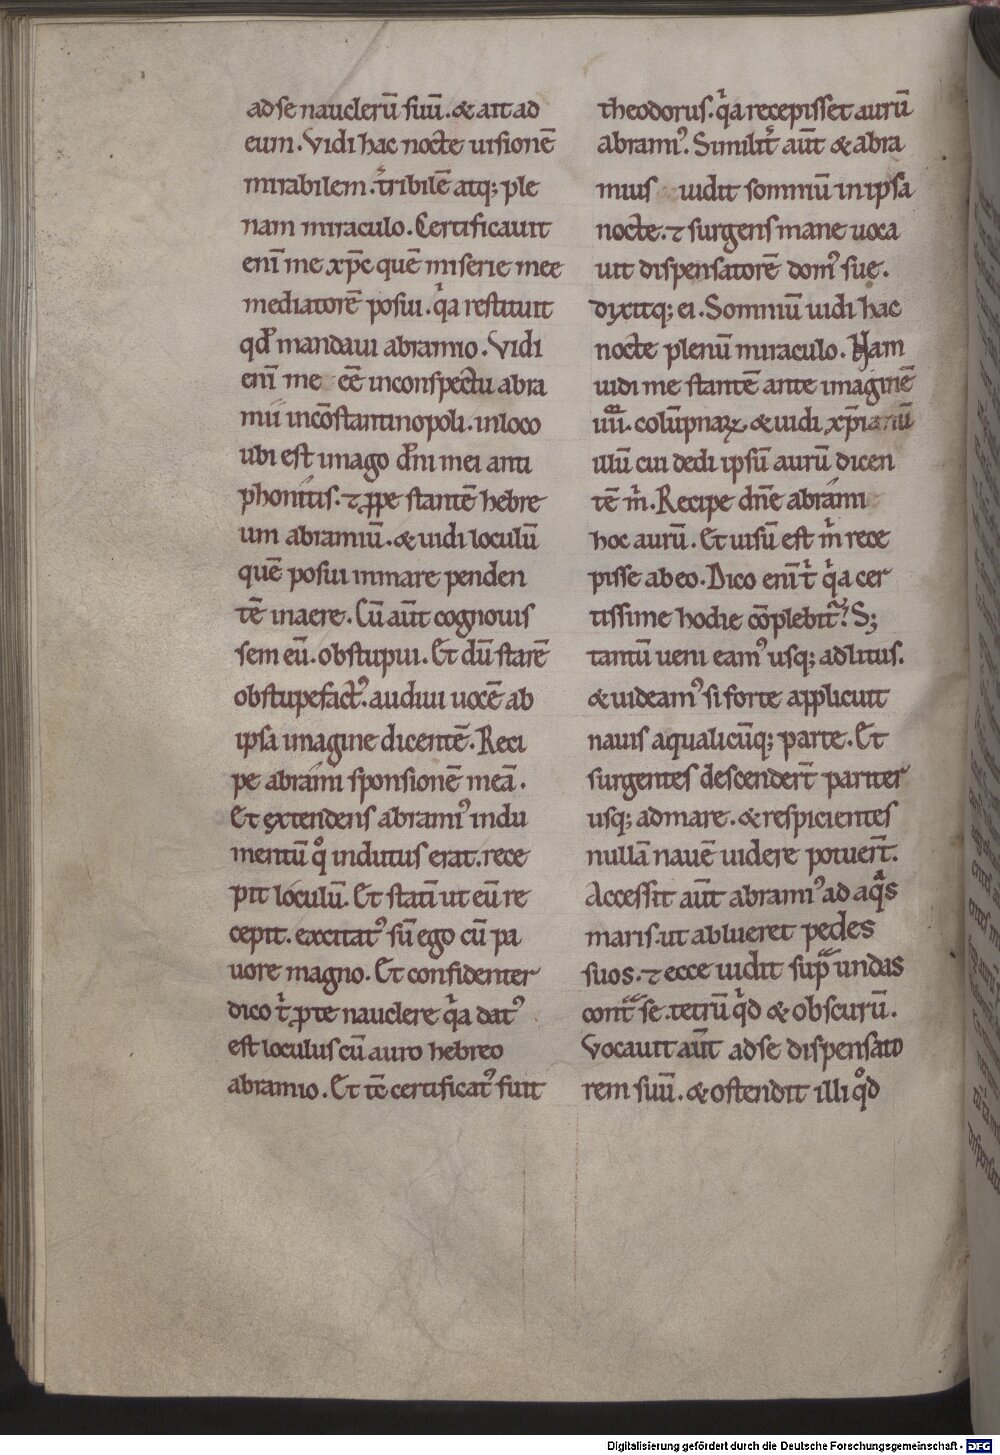 ad se nauclerū suū. & ait ad
eum. Vidi hac nocte uisionē
mirabilem. tˀribilē atq; ple
nam miraculo. Certificauit
enī me xp̄c quē miserie mee
mediatorē posui. qͥa restituit
qd̓ mandaui abramio. Vidi
enī me eē inconspectu abra
mii incōstantinopoli. in loco
ubi est imago dn̄i mei anti
phonitis. ⁊ ꝓpe stantē hebre
um abramiū. & uidi loculū
quē posui inmare penden
tē inaere. Cū aūt cognouis
sem eū. obstupui. Et dū starē
obstupefactꝰ. audiui uocē ab
ipsa imagine dicentē. Reci
pe abrami sponsionē meā.
Et extendens abramiꝰ indu
mentū qͦ indutus erat. rece
pit loculū. Et statī ut eū re
cepit. excitatꝰ sū ego cū pa
uore magno. Et confidenter
dico tͥ ꝓ te nauclere qͥa datꝰ
est loculus cū auro hebreo
abramio. Et tē certificatꝰ fuit
theodorus. qͥa recepisset aurū
abramiꝰ. Similit̓ aūt & abra
mius uidit somniū in ipsa
nocte. ⁊ surgens mane uoca
uit dispensatorē domꝰ sue.
dixitq; ei. Somniū uidi hac
nocte plenū miraculo. Nam
uidi me stantē ante imaginē
colūpnaꝝ. & uidi xp̄ianū
illū cui dedi ipsū aurū dicen
tē mͥ. Recipe dn̄e abrami
hoc aurū. Et uisū est mͥ rece
pisse ab eo. Dico enī tͥ qͥa cer
tissime hodie cōplebit̉. S;
tantū ueni eamꝰ usq; ad litus.
& uideamꝰ si forte applicuit
nauis a qualicūq; parte. Et
surgentes descender̄t pariter
usq; ad mare. & respicientes
nullā nauē uidere potuer̄t.
Accessit aūt abramiꝰ ad aqͣs
maris. ut ablueret pedes
suos. ⁊ ecce uidit supͣ undas
contͣ se. tetrū qͥd & obscurū.
Vocauit aūt ad se dispensato
rem suū. & ostendit illi qͦd
Digitalisierung gefördert durch die Deutsche Forschungsgemeinschaft - DFG